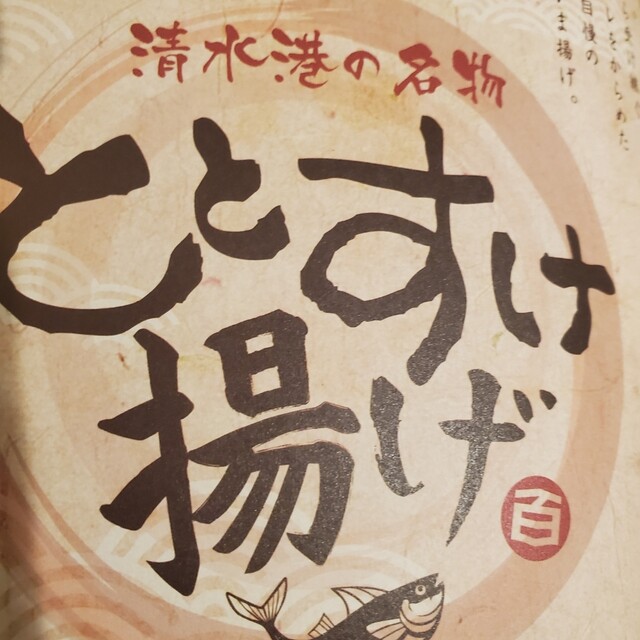 清水港の名物
ととすけ
揚げ
百
しをからめた
自慢の
ま揚げ。